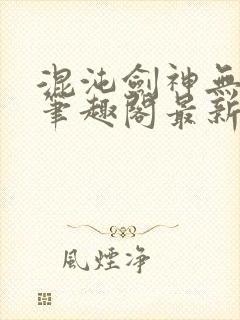 混沌劍神無
筆趣閣最新
風煙净